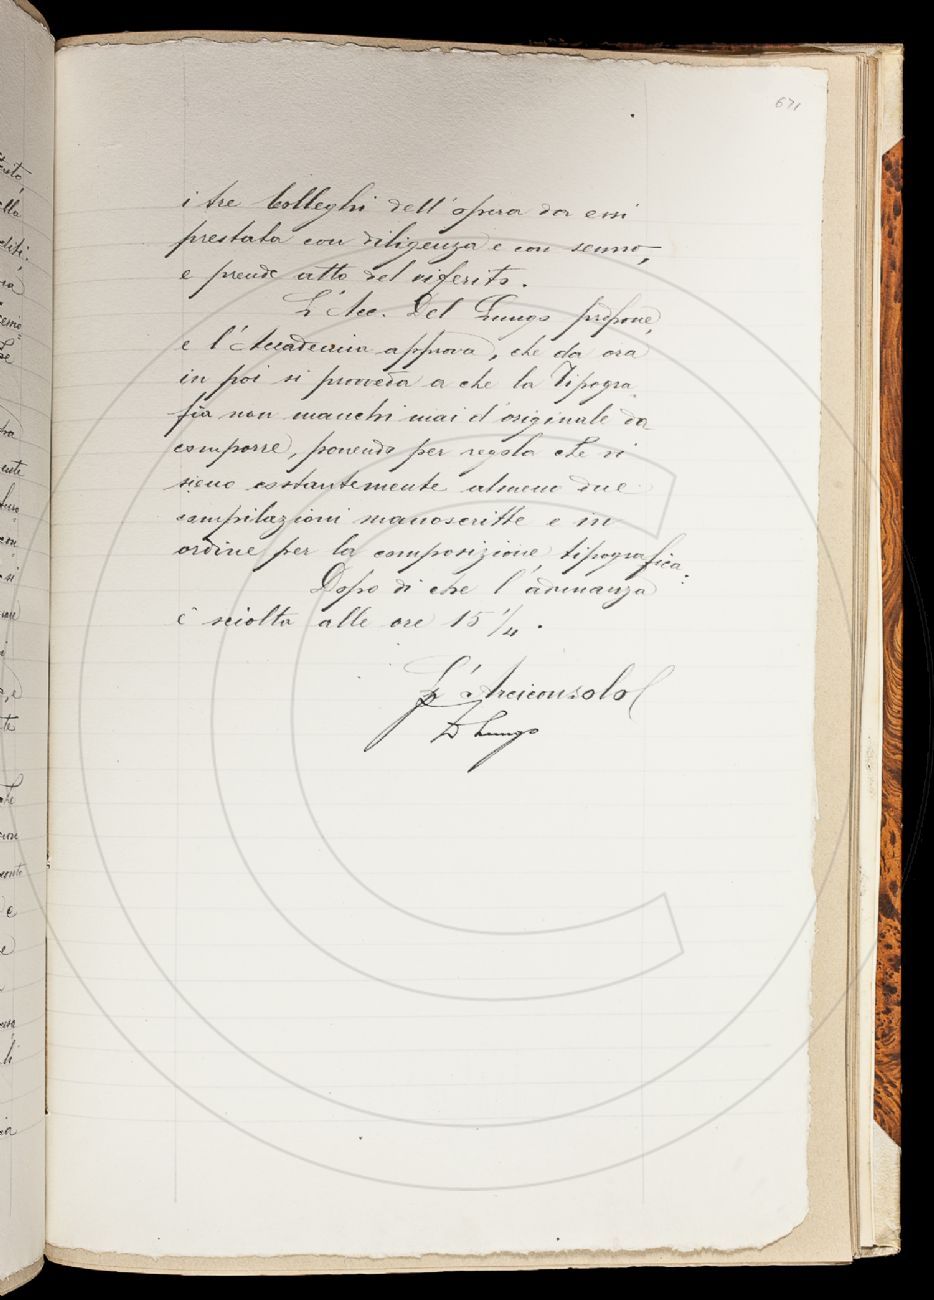 671
i tre Colleghi dell'opera da essi
prestata con diligenza e con senno,
e prende atto del riferito.
L'Acc. Del Lungo propone,
e l'Accademia approva, che da ora
in poi si proveda a che la Tipogra
fia non manchi mai d'originale da
comporre, ponendo per regola che vi
sieno costantemente almeno due
compilazioni manoscritte e in
ordine per la composizione tipografica.
Dopo di che l'adunanza
è sciolta alle ore 15 1/4.
L'Arciconsolo
D Lungo